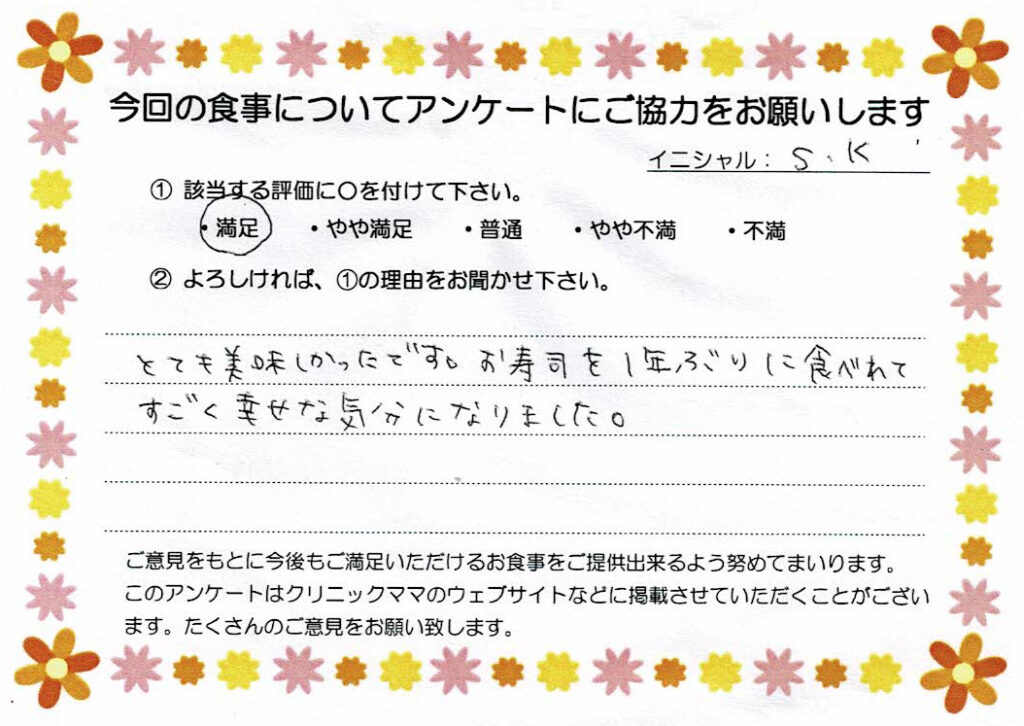 今回の食事についてアンケートにご協力をお願いします
イニシャル： S.K
① 該当する評価に〇を付けて下さい。
・満足 ・やや満足 ・普通 ・やや不満 ・不満
② よろしければ、①の理由をお聞かせ下さい。
とても美味しかったです。お寿司を1年ぶりに食べれて
すごく幸せな気分になりました。
ご意見をもとに今後もご満足いただけるお食事をご提供出来るよう努めてまいります。
このアンケートはクリニックママのウェブサイトなどに掲載させていただくことがござい
ます。たくさんのご意見をお願い致します。